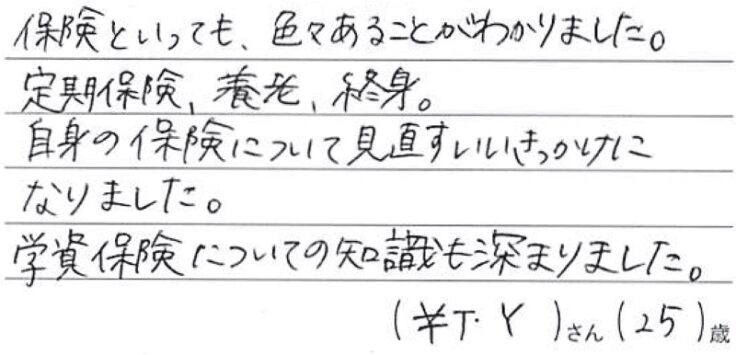 保険といっても、色々あることがわかりました。
定期保険、養老、終身。
自身の保険について見直すいいきっかけに
なりました。
学資保険についての知識も深まりました。
( T.Y )さん(25)歳